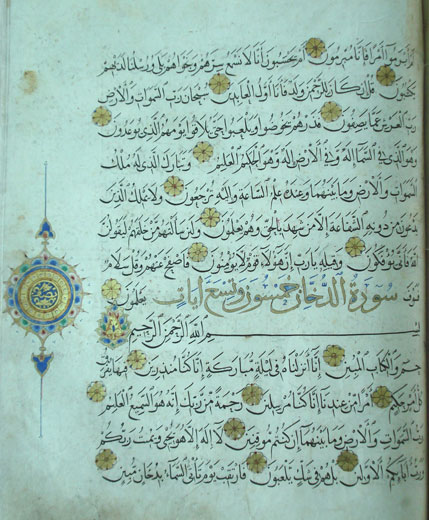 أم أبرموا أمرا فإنا مبرمون أم يحسبون أنا لا نسمع سرهم ونجواهم بلى ورسلنا لديهم
يكتبون قل إن كان للرحمن ولد فأنا أول العابدين سبحان رب السموات والأرض
رب العرش عما يصفون فذرهم يخوضوا ويلعبوا حتى يلاقوا يومهم الذي يوعدون
وهو الذي في السماء إله وفي الأرض إله وهو الحكيم العليم وتبارك الذي له ملك
السموات والأرض وما بينهما وعنده علم الساعة وإليه ترجعون ولا يملك الذين
يدعون من دونه الشفاعة إلا من شهد بالحق وهم يعلمون ولئن سألتهم من خلقهم ليقولن
الله فأنى يؤفكون وقيله يارب إن هؤلاء قوم لا يؤمنون فاصفح عنهم وقل سلام
فسوف سورة الدخان خمسون وتسع آيات يعلمون
بسم الله الرحمن الرحيم
حم والكتاب المبين إنا أنزلناه في ليلة مباركة إنا كنا منذرين فيها يفرق
كل أمر حكيم أمرا من عندنا إنا كنا مرسلين رحمة من ربك إنه هو السميع العليم
رب السموات والأرض وما بينهما إن كنتم موقنين لا إله إلا هو يحيي ويميت ربكم
ورب آبائكم الأولين بل هم في شك يلعبون فارتقب يوم تأتي السماء بدخان مبين